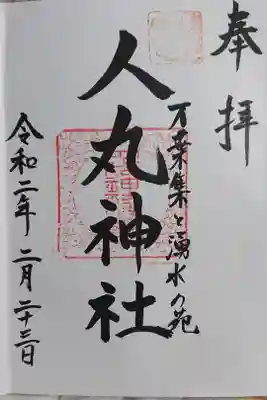 奉拝
万葉集と湧水の苑
人丸神社
令和二年 二月二十三日